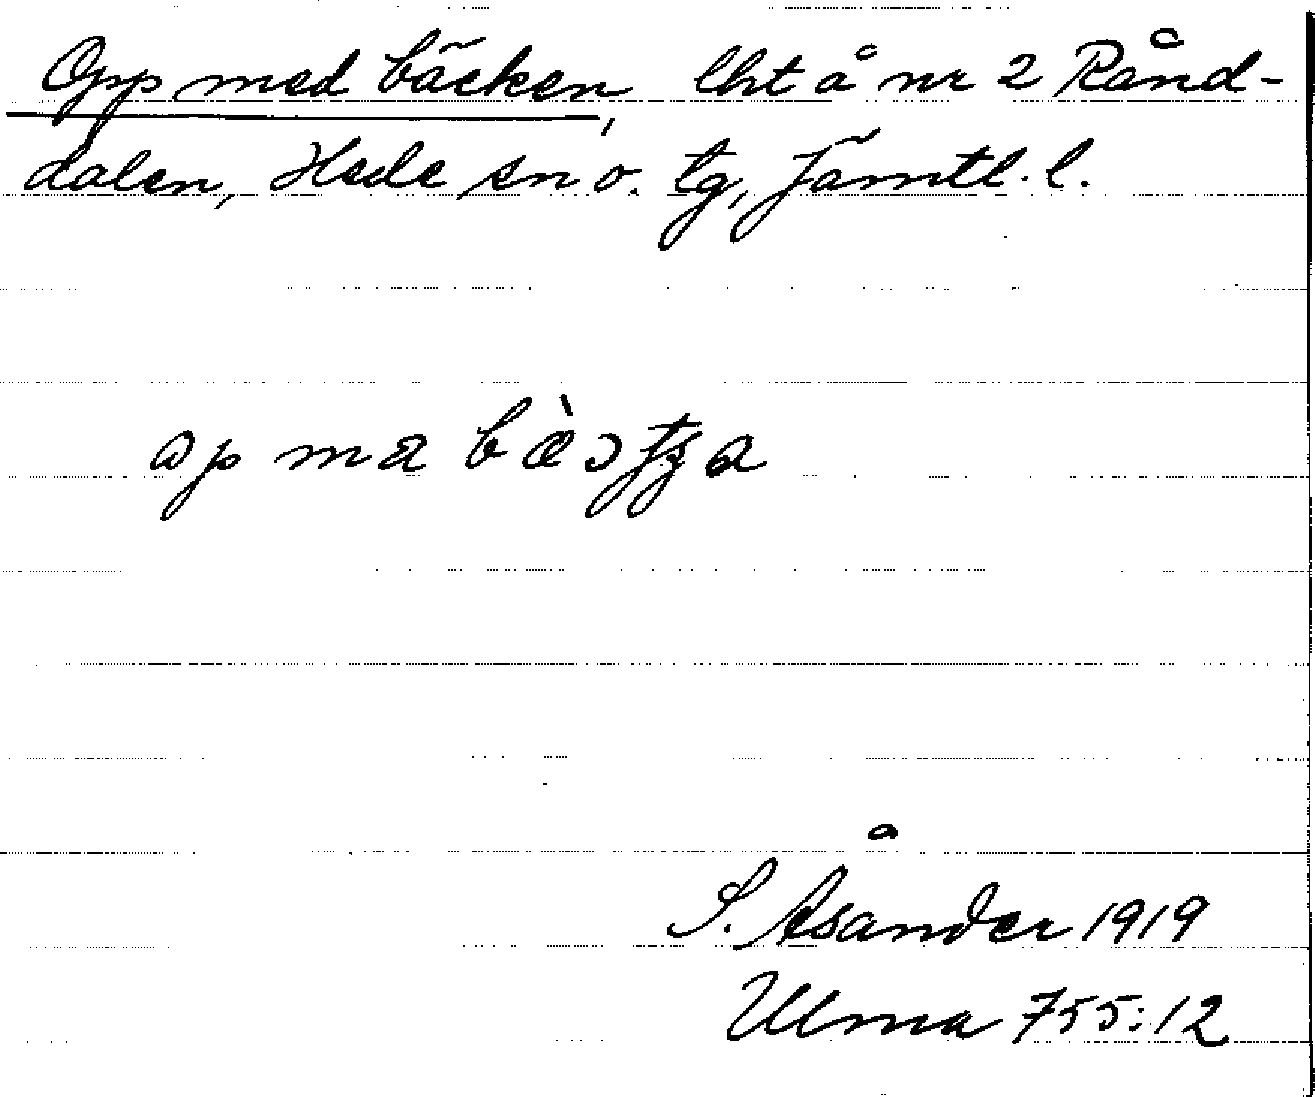 Opp med bäcken, lht å nr 2 Rånd-
dalen, Hede sn o. tg, Jämtl. l.
op ma
S. Åsander 1919
Ulma 755:12